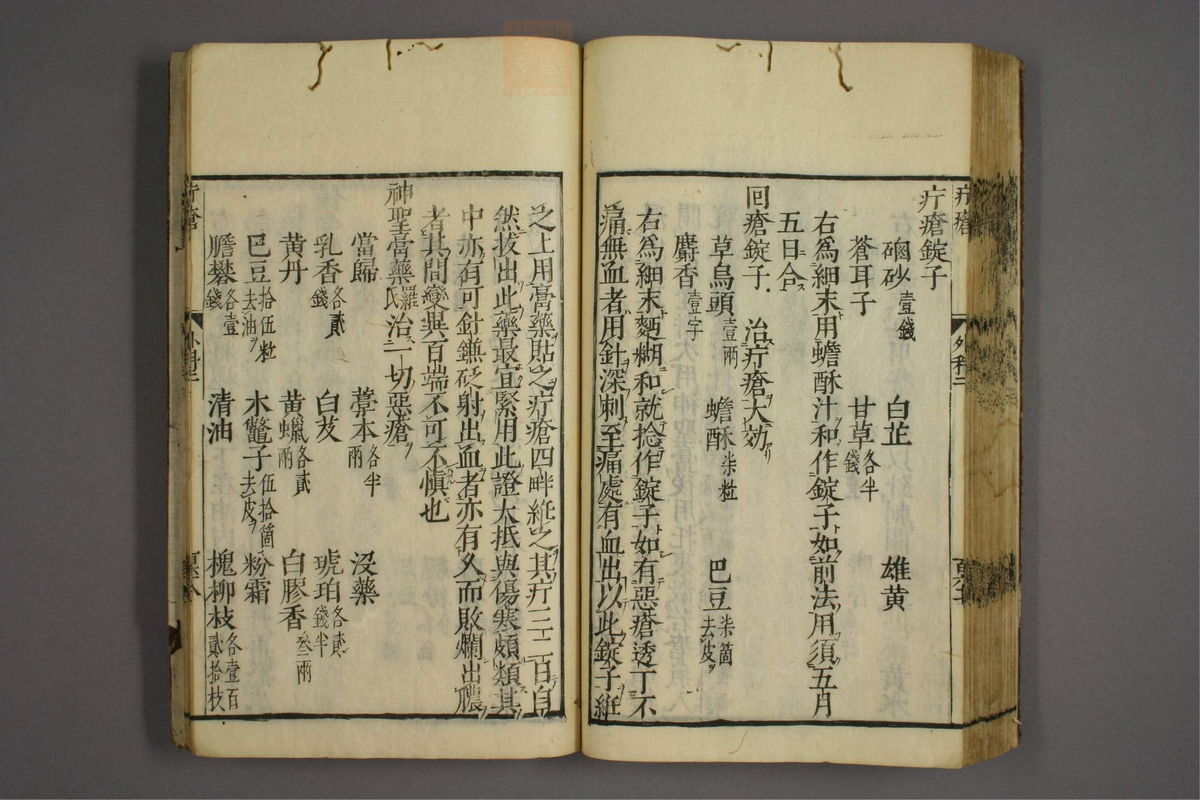 疔瘡錠子
硇砂壹錢 白芷 雄黄
蒼耳子 甘草各半錢
右爲細末用蟾酥汁和作錠子如前法用須五月
五日合
回瘡錠子 治疔瘡大効
草烏頭壹兩 蟾酥柒粒 巴豆柒箇去皮
麝香壹字
右爲細末麪糊和就捻作錠子如有惡瘡透丁不
痛無血者用針深刺至痛處有血出以此錠子紝
之上用膏藥貼之疔瘡四畔紝之其疔三二百自
然拔出此藥最宜緊用此證大抵與傷寒頗類其
中亦有可針鎌砭射出血者亦有久而敗爛出膿
者其間變異百端不可不慎也
神聖膏藥羅氏 治一切惡瘡
當歸 藁本各半兩 没藥
乳香各貳錢 白芨 琥珀各貳錢半
黄丹 黄蠟各貳兩 白膠香叁兩
巴豆拾伍粒去油 木鼈子伍拾箇去皮 粉霜
膽礬各壹錢 清油 槐柳枝各壹百貳拾枝